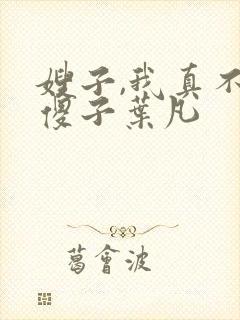 嫂子,我真不
傻子葉凡
葛會波